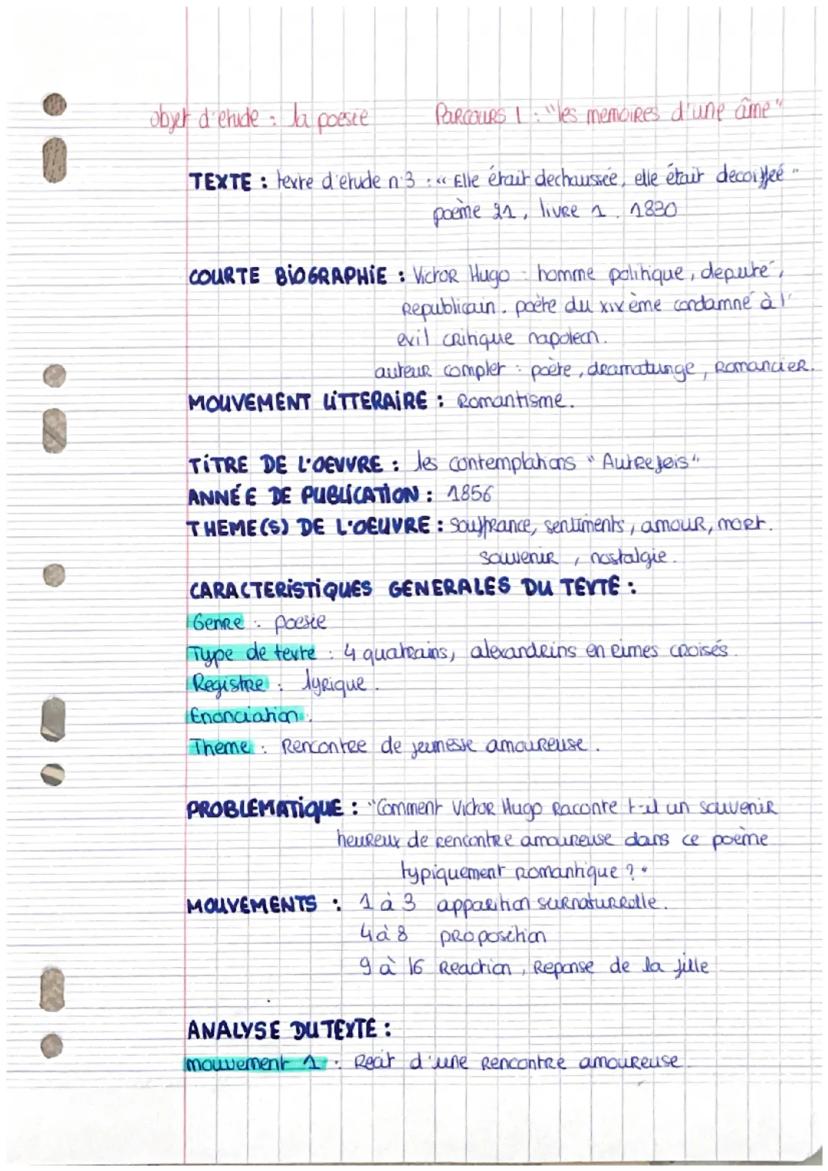 objet d'etude : la poesie PARCOURS 1 : "les memoires d'une âme"
TEXTE : texte d'etude n°3 : "Elle était dechaussée, elle était decoiffée"
poème 21, livre 1. 1830
COURTE BIOGRAPHIE : Victor Hugo : homme politique, deputé,
Republicain. poète du XIXème condamné à l'
exil critique napoleon.
auteur complet : poète, dramaturge, Romancier.
MOUVEMENT LITTERAIRE : Romantisme.
TITRE DE L'OEVVRE : les contemplations "Autrefois"
ANNÉE DE PUBLICATION : 1856
THEME(S) DE L'OEUVRE : Souffrance, sentiments, amour, mort.
souvenir, nostalgie.
CARACTERISTIQUES GENERALES DU TEXTE :
Genre : poesie
Type de texte : 4 quatrains, alexandrins en rimes croisés.
Registre : lyrique.
Enonciation :
Theme : Rencontre de jeunesse amoureuse.
PROBLEMATIQUE : "Comment Victor Hugo Raconte t-il un souvenir
heureux de rencontre amoureuse dans ce poème
typiquement romantique ?"
MOUVEMENTS : 1 à 3 apparition surnaturelle.
4 à 8 proposition
9 à 16 Reaction, Reponse de la fille
ANALYSE DU TEXTE :
mouvement 1 : Recit d'une Rencontre amoureuse.